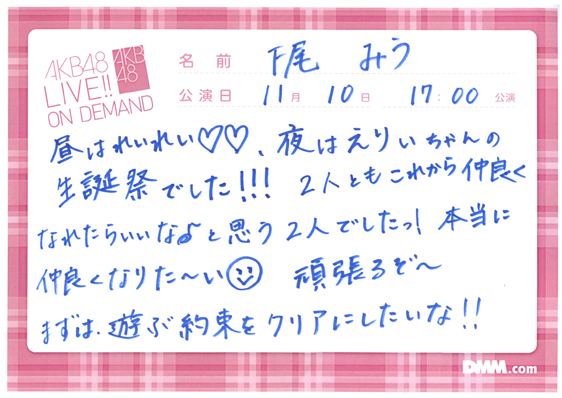 AKB48
LIVE!!
ON DEMAND
AKB
48
名前 下尾 みう
公演日 11月 10日 17:00 公演
昼はれいれい♡♡、夜はえりぃちゃんの
生誕祭でした!!! 2人ともこれから仲良く
なれたらいいな♪と思う2人でしたっ! 本当に
仲良くなりた〜い☺ 頑張るぞ〜
まずは、遊ぶ約束をクリアにしたいな!!
DMM.com